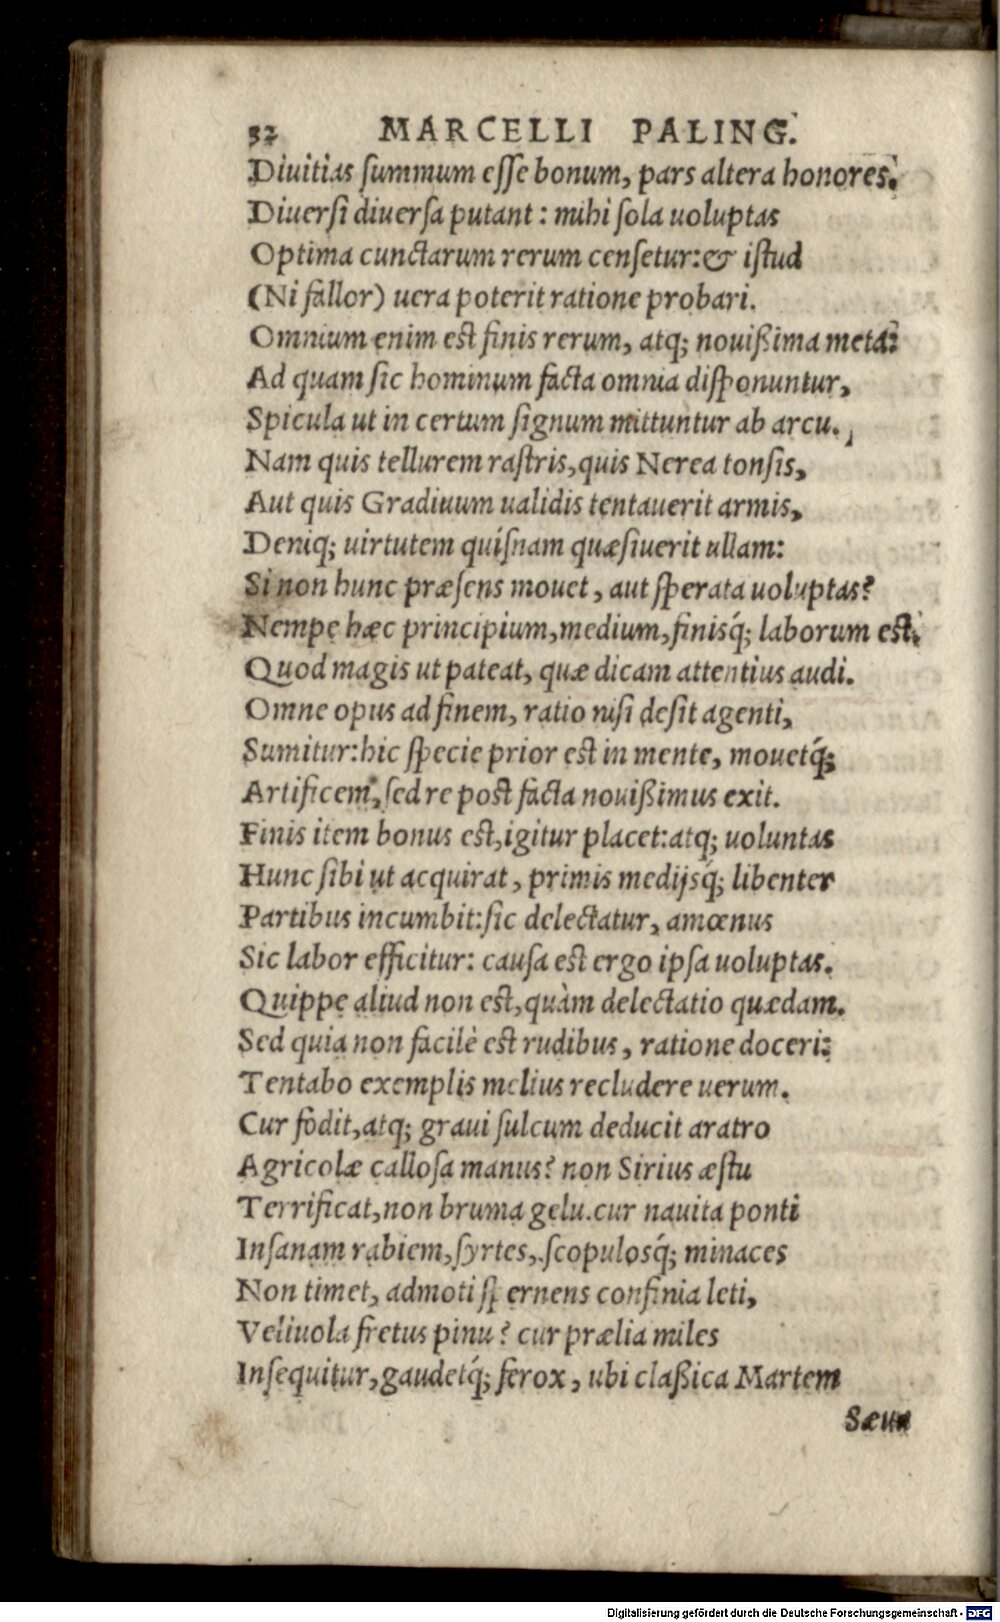 32 MARCELLI PALING.
Diuitias ſummum eſſe bonum, pars altera honores.
Diuerſi diuerſa putant: mihi ſola uoluptas
Optima cunctarum rerum cenſetur:& iſtud
(Ni fallor) uera poterit ratione probari.
Omnium enim est finis rerum, atq; nouißima meta:
Ad quam ſic hominum facta omnia diſponuntur,
Spicula ut in certum ſignum mittuntur ab arcu.
Nam quis tellurem raſtris, quis Nerea tonſis,
Aut quis Gradiuum ualidis tentauerit armis,
Deniq; uirtutem quiſnam quæſiuerit ullam:
Si non hunc præſens mouet, aut ſperata uoluptas?
Nempe hæc principium, medium, finisq́; laborum est.
Quod magis ut pateat, quæ dicam attentius audi.
Omne opus ad finem, ratio niſi deſit agenti,
Sumitur:hic ſpecie prior est in mente, mouetq́;
Artificem, ſed re post facta nouißimus exit.
Finis item bonus est, igitur placet:atq; uoluntas
Hunc ſibi ut acquirat, primis medijsq́; libenter
Partibus incumbit:ſic delectatur, amœnus
Sic labor efficitur: cauſa est ergo ipſa uoluptas.
Quippe aliud non est, quàm delectatio quædam.
Sed quia non facilè est rudibus, ratione doceri:
Tentabo exemplis melius recludere uerum.
Cur fodit, atq; graui ſulcum deducit aratro
Agricolæ calloſa manus? non Sirius æſtu
Terrificat, non bruma gelu. cur nauita ponti
Inſanam rabiem, ſyrtes, ſcopulosq́; minaces
Non timet, admoti ſpernens confinia leti,
Veliuola fretus pinu? cur prælia miles
Inſequitur, gaudetq́; ferox, ubi claßica Martem
Sæua
Digitalisierung gefördert durch die Deutsche Forschungsgemeinschaft - DFG